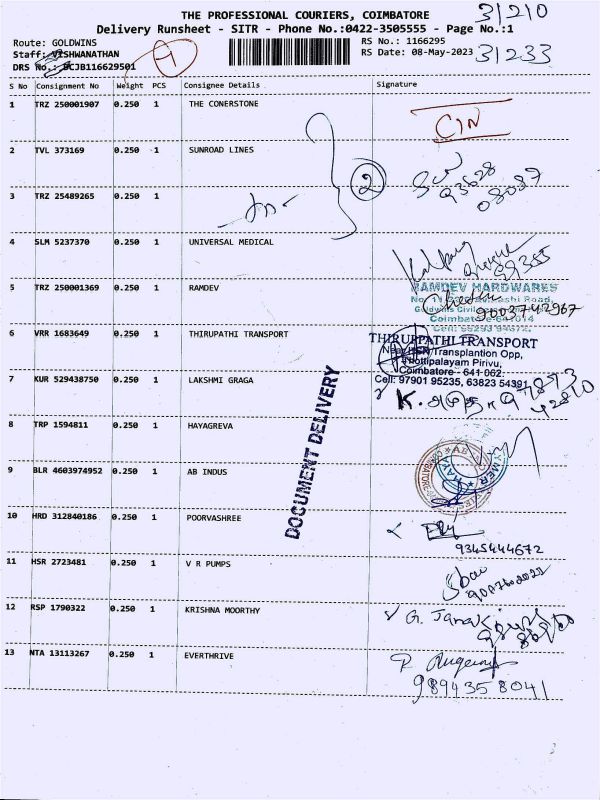 THE PROFESSIONAL COURIERS, COIMBATORE
31210
Delivery Runsheet - SITR - Phone No.:0422-3505555 - Page No.:1
Route: GOLDWINS
RS No.: 1166295
Staff: VISHWANATHAN
RS Date: 08-May-2023
31233
DRS No.: SCJB116629501
S No Consignment No Weight PCS Consignee Details Signature
1 TRZ 250001907 0.250 1 THE CONERSTONE
2 TVL 373169 0.250 1 SUNROAD LINES
2
3 TRZ 25489265 0.250 1
4 SLM 5237370 0.250 1 UNIVERSAL MEDICAL
5 TRZ 250001369 0.250 1 RAMDEV
RAMDEV HARDWARES
9003742967
6 VRR 1683649 0.250 1 THIRUPATHI TRANSPORT
THIRUPPATHI TRANSPORT
Transplantion Opp,
Thottipalayam Pirivu,
Coimbatore - 641 062.
Cell: 97901 95235, 63823 54391
7 KUR 529438750 0.250 1 LAKSHMI GRAGA
DOCUMENT DELIVERY
8 TRP 1594811 0.250 1 HAYAGREVA
9 BLR 4603974952 0.250 1 AB INDUS
10 HRD 312840186 0.250 1 POORVASHREE
9345444672
11 HSR 2723481 0.250 1 V R PUMPS
12 RSP 1790322 0.250 1 KRISHNA MOORTHY
13 NTA 13113267 0.250 1 EVERTHRIVE
9894358041